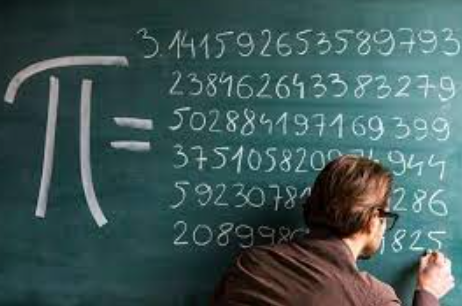 π=
3.141592653589793
238462643383279
502884197169399
375105820 944
5923078 286
208998 825